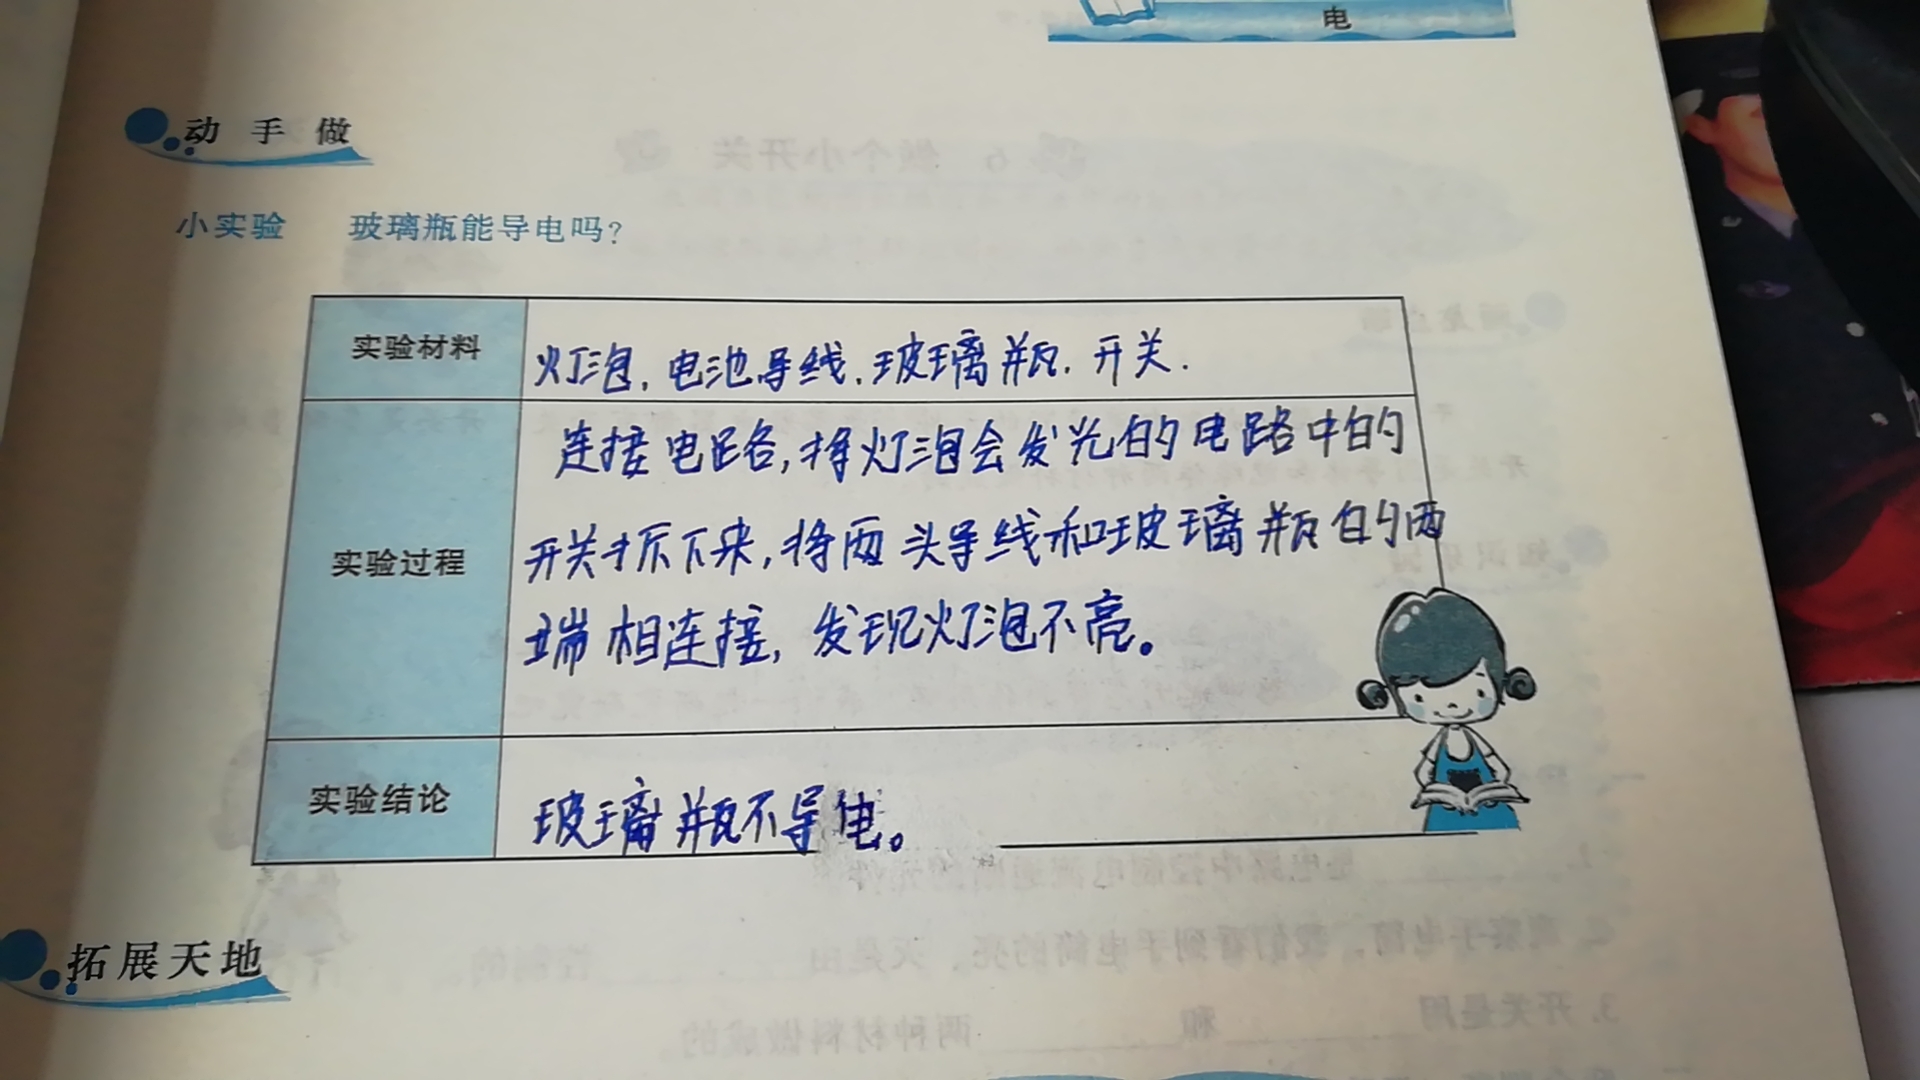 电
动手做
小实验 玻璃瓶能导电吗?
实验材料
灯泡,电池导线,玻璃瓶,开关.
实验过程
连接电路,将灯泡会发光的电路中的
开关拆下来,将两头导线和玻璃瓶的两
端相连接,发现灯泡不亮。
实验结论
玻璃瓶不导电。
拓展天地